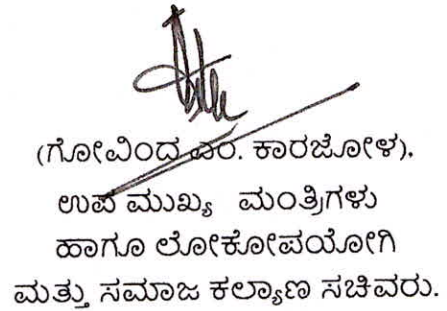 (ಗೋವಿಂದ ಎಂ. ಕಾರಜೋಳ),
ಉಪ ಮುಖ್ಯ ಮಂತ್ರಿಗಳು
ಹಾಗೂ ಲೋಕೋಪಯೋಗಿ
ಮತ್ತು ಸಮಾಜ ಕಲ್ಯಾಣ ಸಚಿವರು.